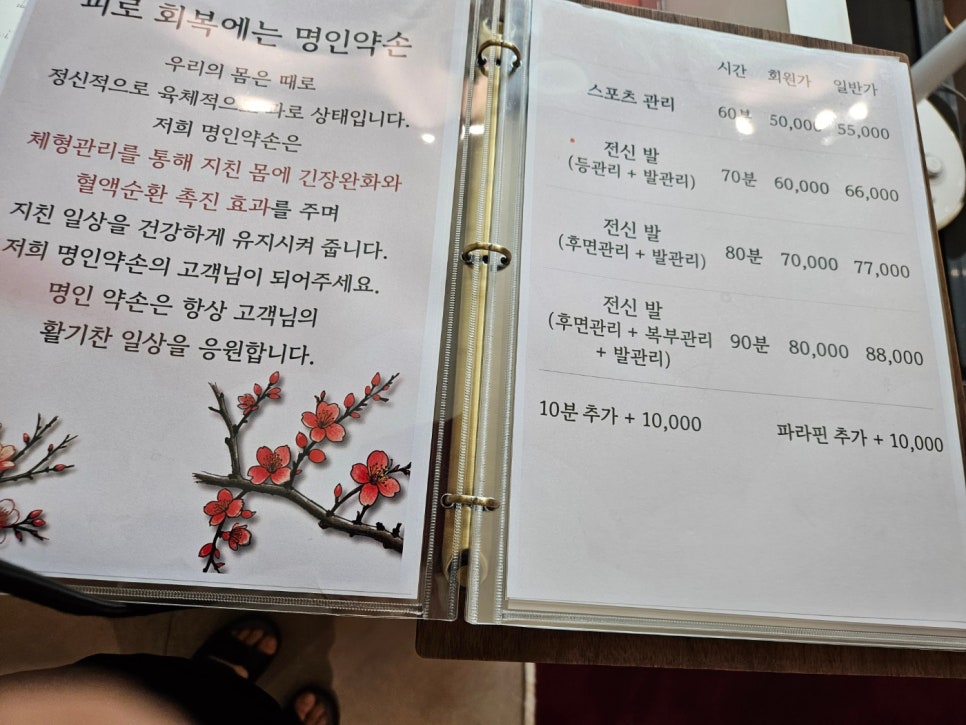 피로 회복에는 명인약손
우리의 몸은 때로
정신적으로 육체적으로 과로 상태입니다.
저희 명인약손은
체형관리를 통해 지친 몸에 긴장완화와
혈액순환 촉진 효과를 주며
지친 일상을 건강하게 유지시켜 줍니다.
저희 명인약손의 고객님이 되어주세요.
명인 약손은 항상 고객님의
활기찬 일상을 응원합니다.
시간 회원가 일반가
스포츠 관리 60분 50,000 55,000
전신 발
(등관리 + 발관리) 70분 60,000 66,000
전신 발
(후면관리 + 발관리) 80분 70,000 77,000
전신 발
(후면관리 + 복부관리 90분 80,000 88,000
+ 발관리)
10분 추가 + 10,000 파라핀 추가 + 10,000